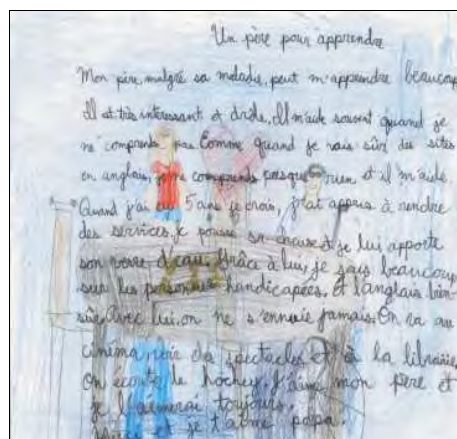 Un père pour apprendre
Mon père, malgré sa maladie, peut m'apprendre beaucoup
Il est très intéressant et drôle. Il m'aide souvent quand je
ne comprends pas. Comme quand je vais sûr des sites
en anglais, je ne comprends presque rien et il m'aide.
Quand j'ai eu 5 ans je crois, j'ai appris à rendre
des services. Je pousse sa chaise et je lui apporte
son verre d'eau. Grâce à lui, je sais beaucoup
sur les personnes handicapées. Et l'anglais bien-
sûr. Avec lui, on ne s'ennuie jamais. On va au
cinéma, voir des spectacles et à la librairie.
On écoute le hockey. J'aime mon père et
je l'aimerai toujours.
et je t'aime papa.